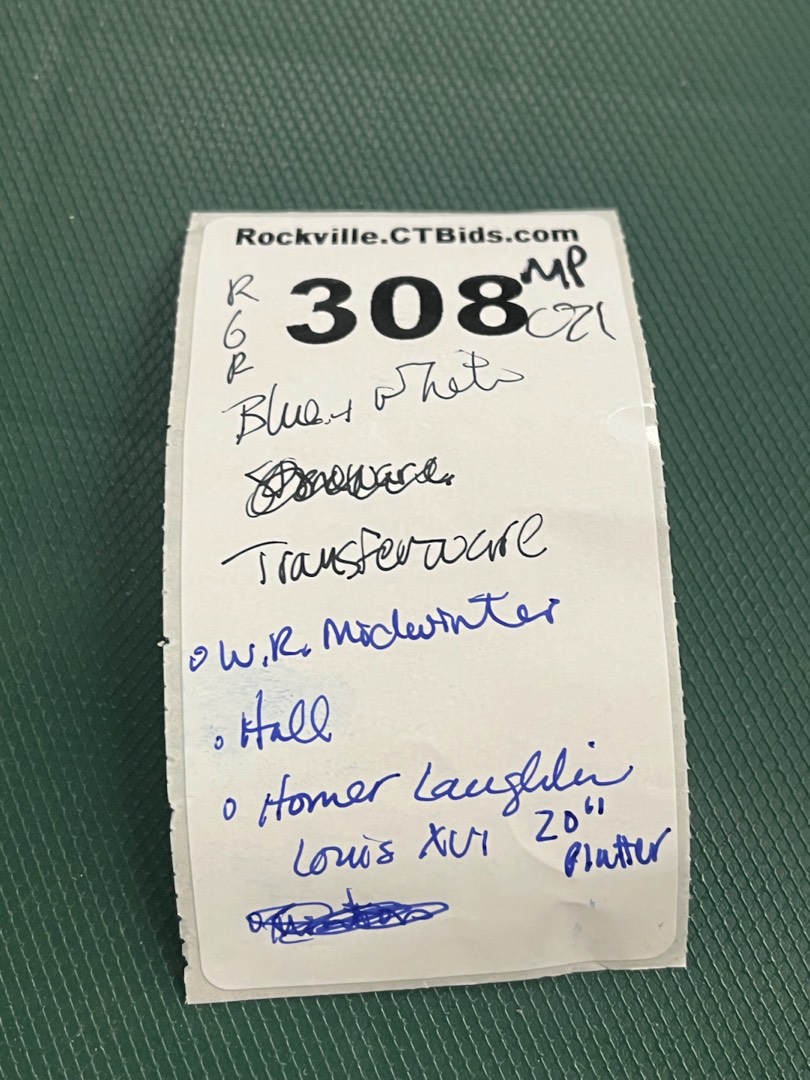 Rockville.CTBids.com
R 308 MP
6 021
R
Blue + White
Stoneware
Transferware
W.R. Midwinter
Hall
Homer Laughlin
Louis XVI 20"
Platter